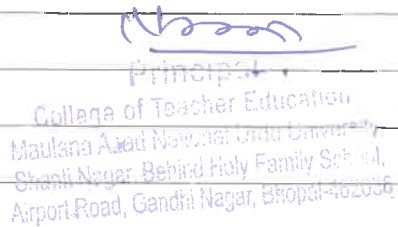 Principal
College of Teacher Education
Maulana Azad National Urdu University
Shanti Nagar, Behind Holy Family School,
Airport Road, Gandhi Nagar, Bhopal-462036